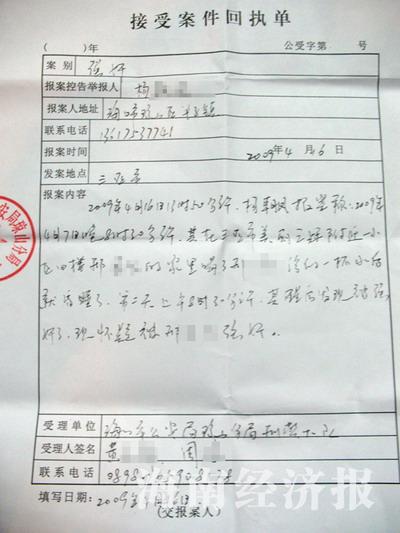 接受案件回执单
( )年 公受字第 号
案别 强奸
报案控告举报人 杨
报案人地址 海口市琼山区
联系电话 13617537741
报案时间 2009年4月16日
发案地点 三亚市
报案内容
2009年4月16日15时50分许,杨 报案称:2009年
4月7日晚8时30分许,其在三亚市 附近一小
区四楼邢 的家里喝了 给的一杯水后
就 睡了,第二天上午8时30分许,其醒后发现被强
奸了,现怀疑被邢 强奸。
受理单位 海口市公安局琼山分局刑警大队
受理人签名 黄 周
联系电话 0898-
填写日期:2009年4月16日
(交报案人)
安局琼山分局
海南经济报